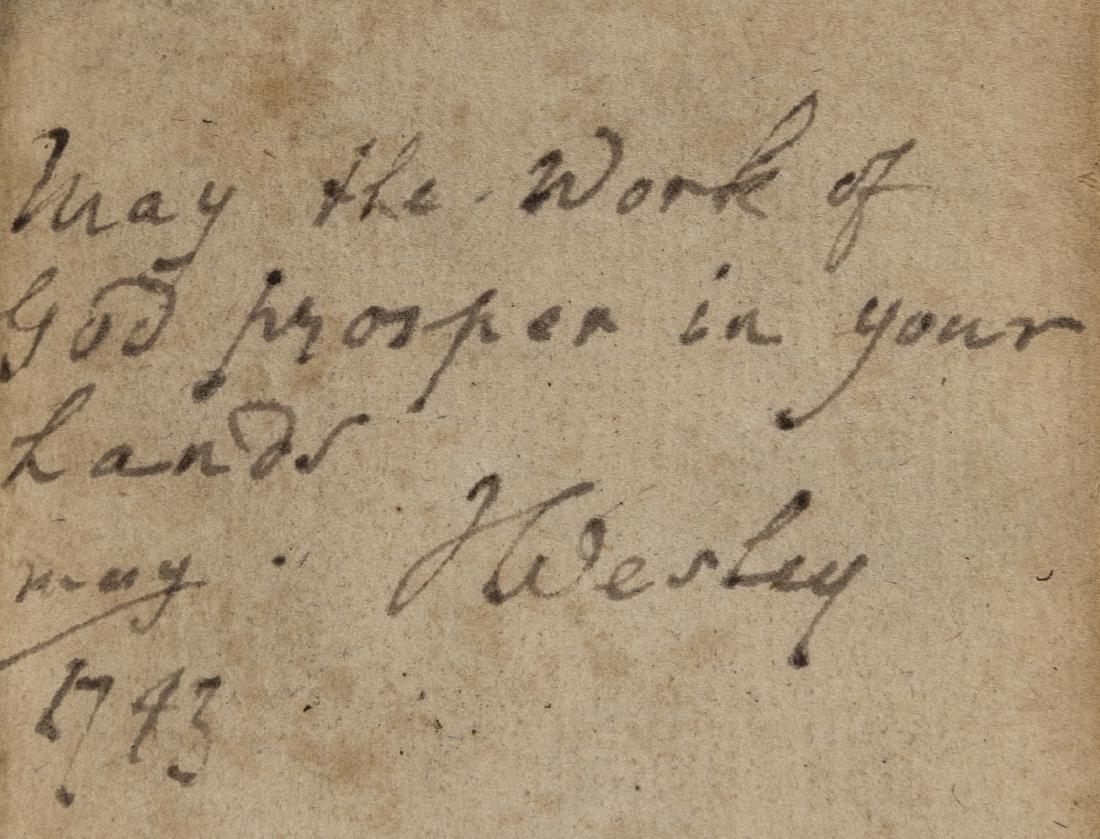 May the Work of
God prosper in your
hands
may JWesley
1743